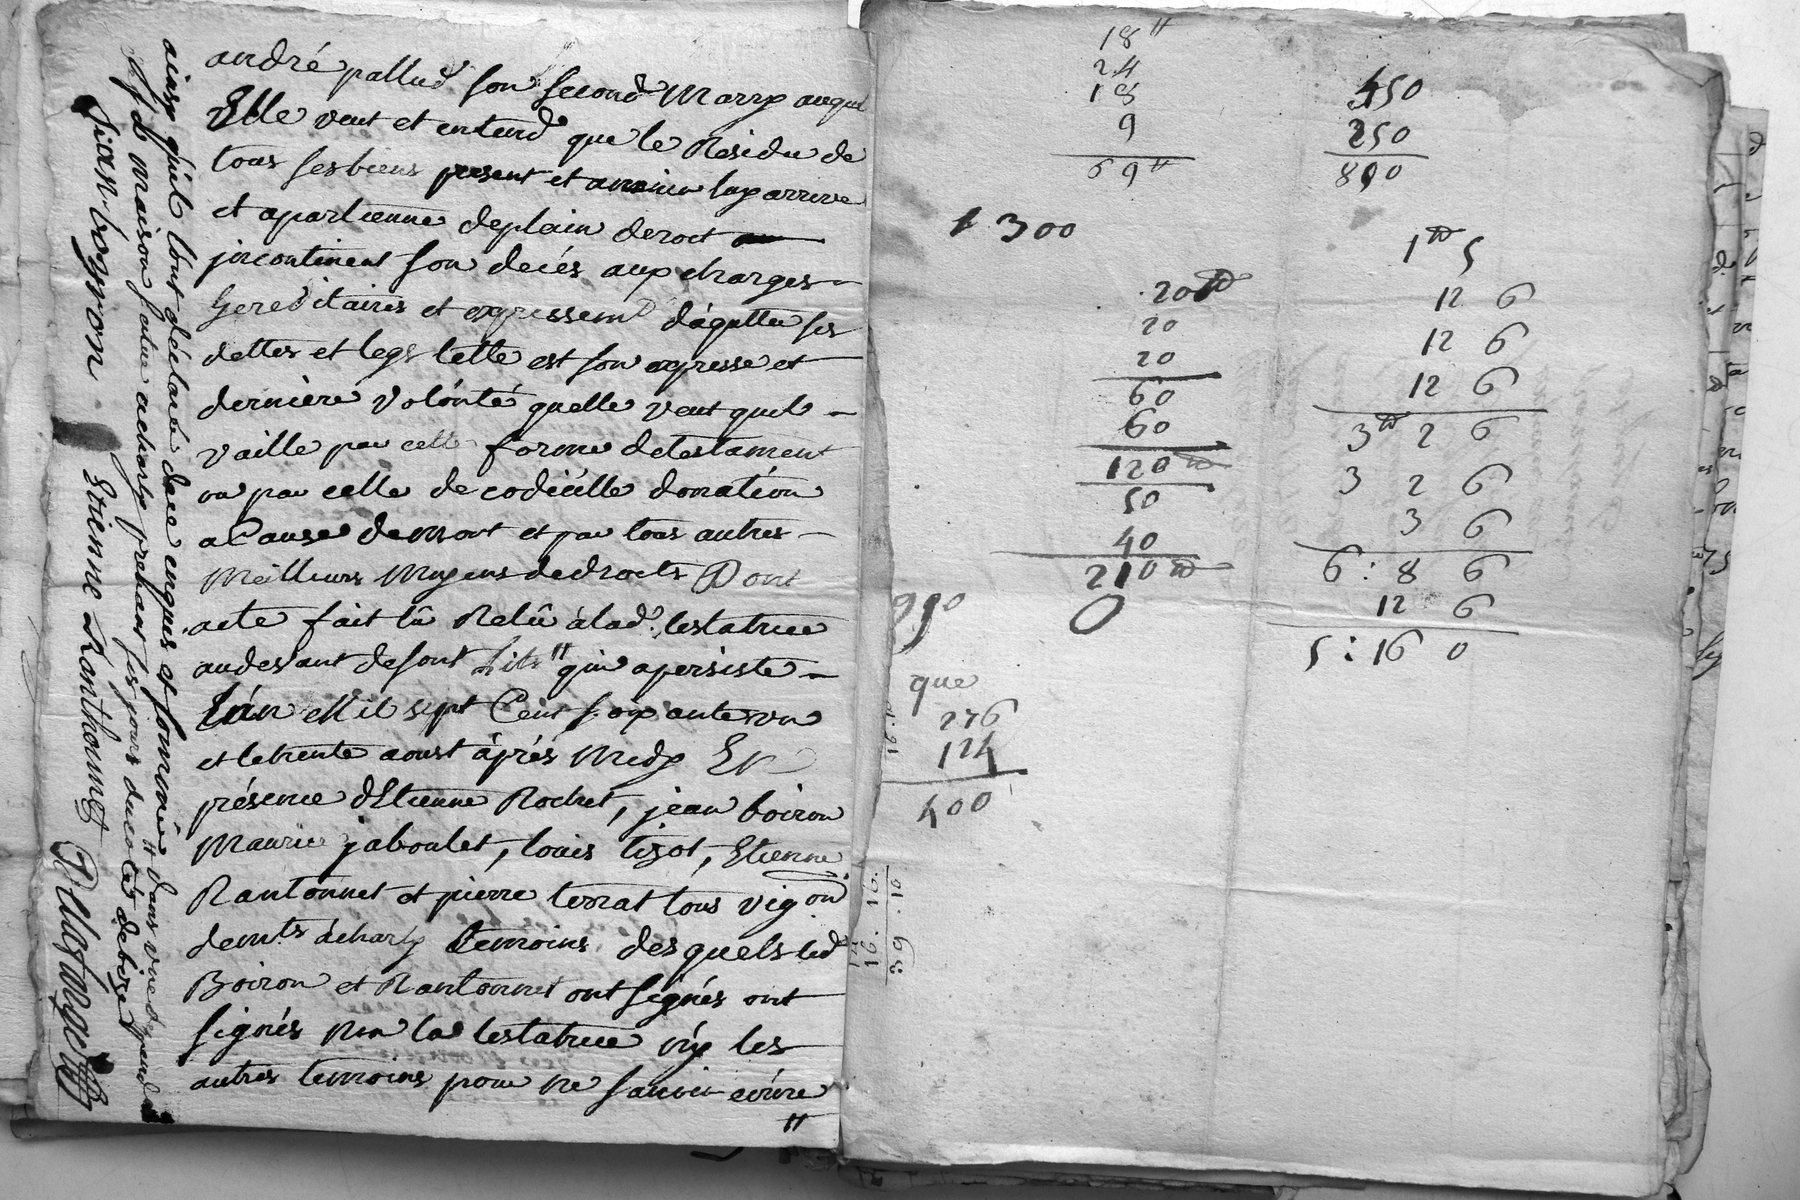 andré pallud son second Mary auquel
Elle veut et entend que le Residu de
tous ses biens present et avenir luy arrive
et apartienne deplain deroit
jncontinent son decés aux charges
hereditaires et expressemt dáquitter ses
dettes et legs telle est son expresse et
derniere Volónté quelle veut quel
vaille par cette forme detestament
ou par celle de codicille donation
a Cause demort et par tous autres
Meilleurs Moyens dedroits Dont
acte fait lû Relû àlad. testatrice
audevant desont Lits " qui apersiste
Lán Mil sept Cent soixante un
et letrente aoust áprés Midy En
présence dEtienne Rochet, jean boiron
Maurice jaboulet, louis tizot, Etienne
Rantonnet et pierre terrat tous vigon
demts àcharly temoins desquels led
Boiron et Rantonnet ont signés ont
signés non la testatrice ny les
autres temoins pour ne savoir ecrire
"
ainsy quil lont déclaré dece enquis et sommé " dans une
de maison scitue acharly prenant ses jours ducoté debize
Jian boyron Etienne Ranthonnet
18 "
24
18
9
69 "
450
250
800
1300
20
20
20
60
60
120
50
40
210
0
1 5
12 6
12 6
12 6
3 2 6
3 2 6
3 6
6 : 8 6
12 6
5 : 16 0
990
que
276
124
400
16. 10
16. 16.
39. 10